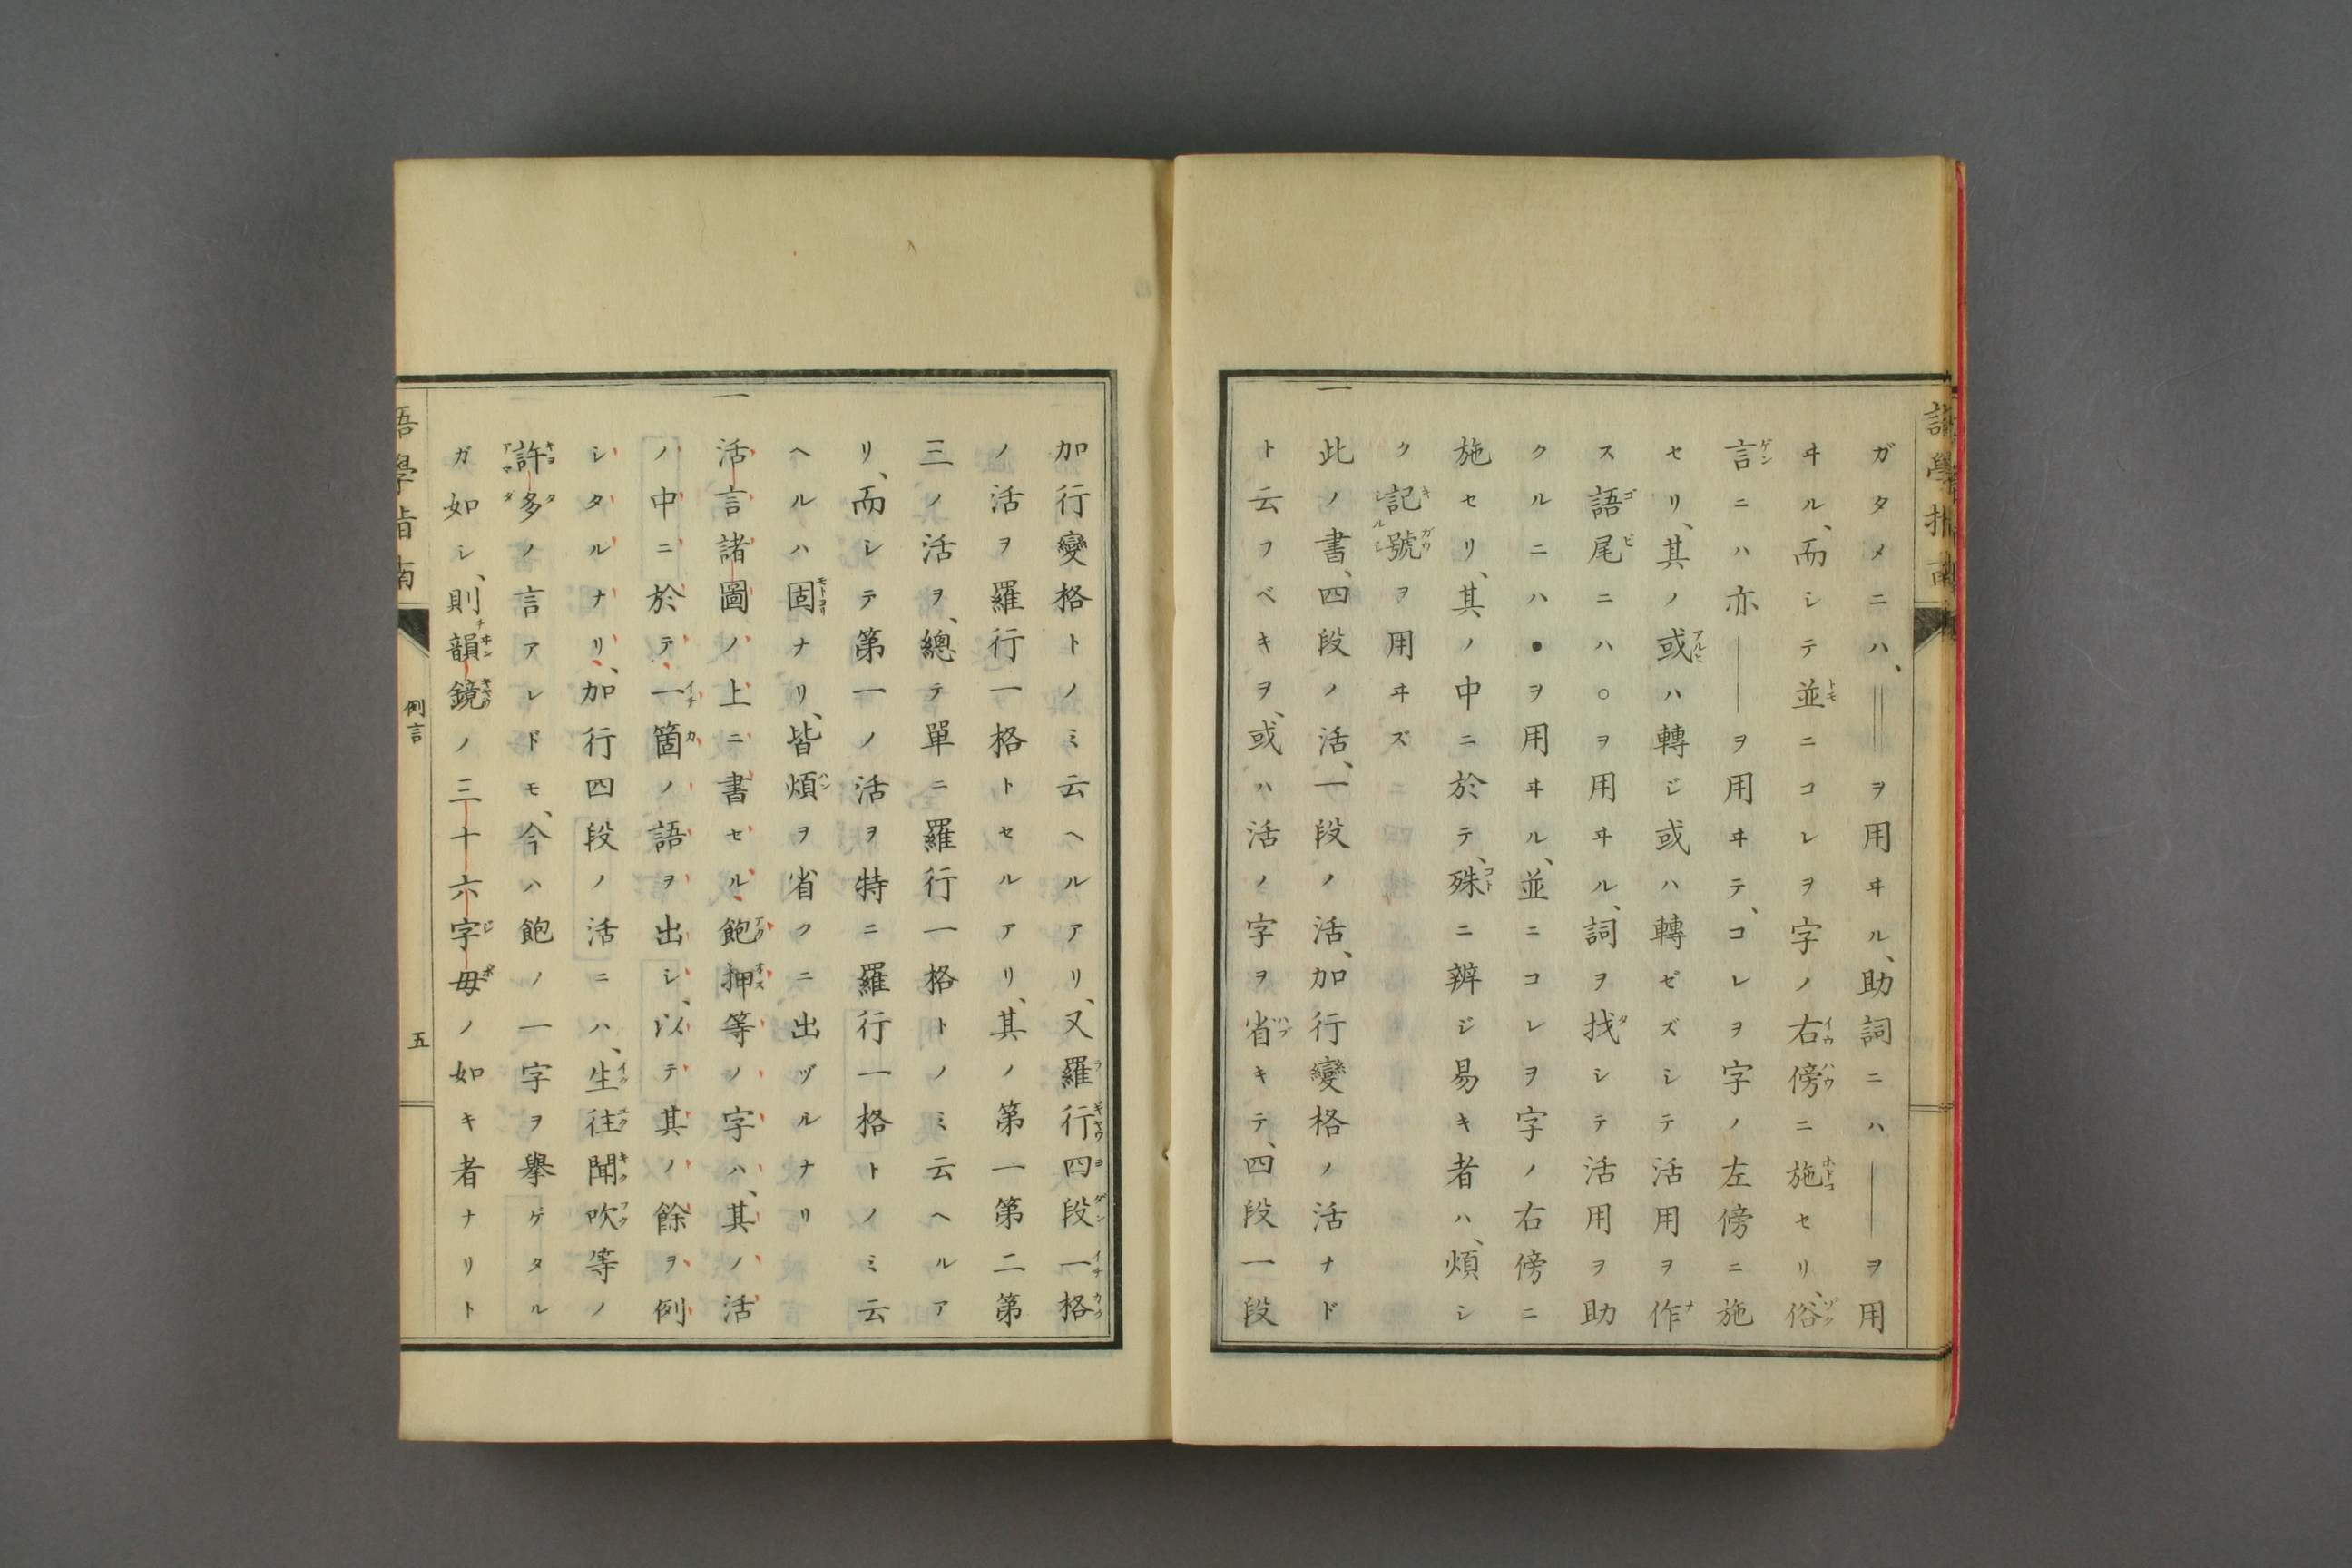 ガタメニハ、║ヲ用ヰル、助詞ニハ│ヲ用
ヰル、而シテ並ニコレヲ字ノ右傍ニ施セリ、俗
言ニハ亦│ヲ用ヰテ、コレヲ字ノ左傍ニ施
セリ、其ノ或ハ轉ジ或ハ轉ゼズシテ活用ヲ作
ス語尾ニハ○ヲ用ヰル、詞ヲ找シテ活用ヲ助
クルニハ●ヲ用ヰル、並ニコレヲ字ノ右傍ニ
施セリ、其ノ中ニ於テ、殊ニ辨ジ易キ者ハ、煩シ
ク記號ヲ用ヰズ
一 此ノ書、四段ノ活、一段ノ活、加行變格ノ活ナド
ト云フベキヲ、或ハ活ノ字ヲ省キテ、四段一段
語學指南
加行變格トノミ云ヘルアリ、又羅行四段一格
ノ活ヲ羅行一格トセルアリ、其ノ第一第二第
三ノ活ヲ、總テ單ニ羅行一格トノミ云ヘルア
リ、而シテ第一ノ活ヲ特ニ羅行一格トノミ云
ヘルハ固ナリ、皆煩ヲ省クニ出ヅルナリ
一 活言諸圖ノ上ニ書セル飽押等ノ字ハ、其ノ活
ノ中ニ於テ、一箇ノ語ヲ出シ、以テ其ノ餘ヲ例
シタルナリ、加行四段ノ活ニハ、生往聞吹等ノ
許多ノ言アレドモ、今ハ飽ノ一字ヲ擧ゲタル
ガ如シ、則韻鏡ノ三十六字母ノ如キ者ナリト
語學指南
例言
五